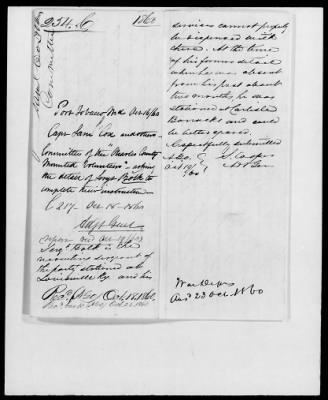 234. C 1860
Port Tobacco Md Oct 16/60
Capt Saml Cox and others
Committee of the "Charles County
Mounted Volunteers" asking
the detail of Sergt
to
complete their instruction
C 217. Oct 18. 1860
Adjt Genl
Sergt is the
recruiting sergeant of
the party stationed at
Louisville Ky. and his
Recd. (AGO) Oct. 18. 1860.
services cannot properly
be dispensed with
there. At the time
of his former detail
when he was absent
from his post about
two months, he was
stationed at Carlisle
Barracks and could
be better spared.
Respectfully submitted
A.G.O. S. Cooper
Oct 19/60 A. Genl
War Dept
Ansd 23 Oct. 1860